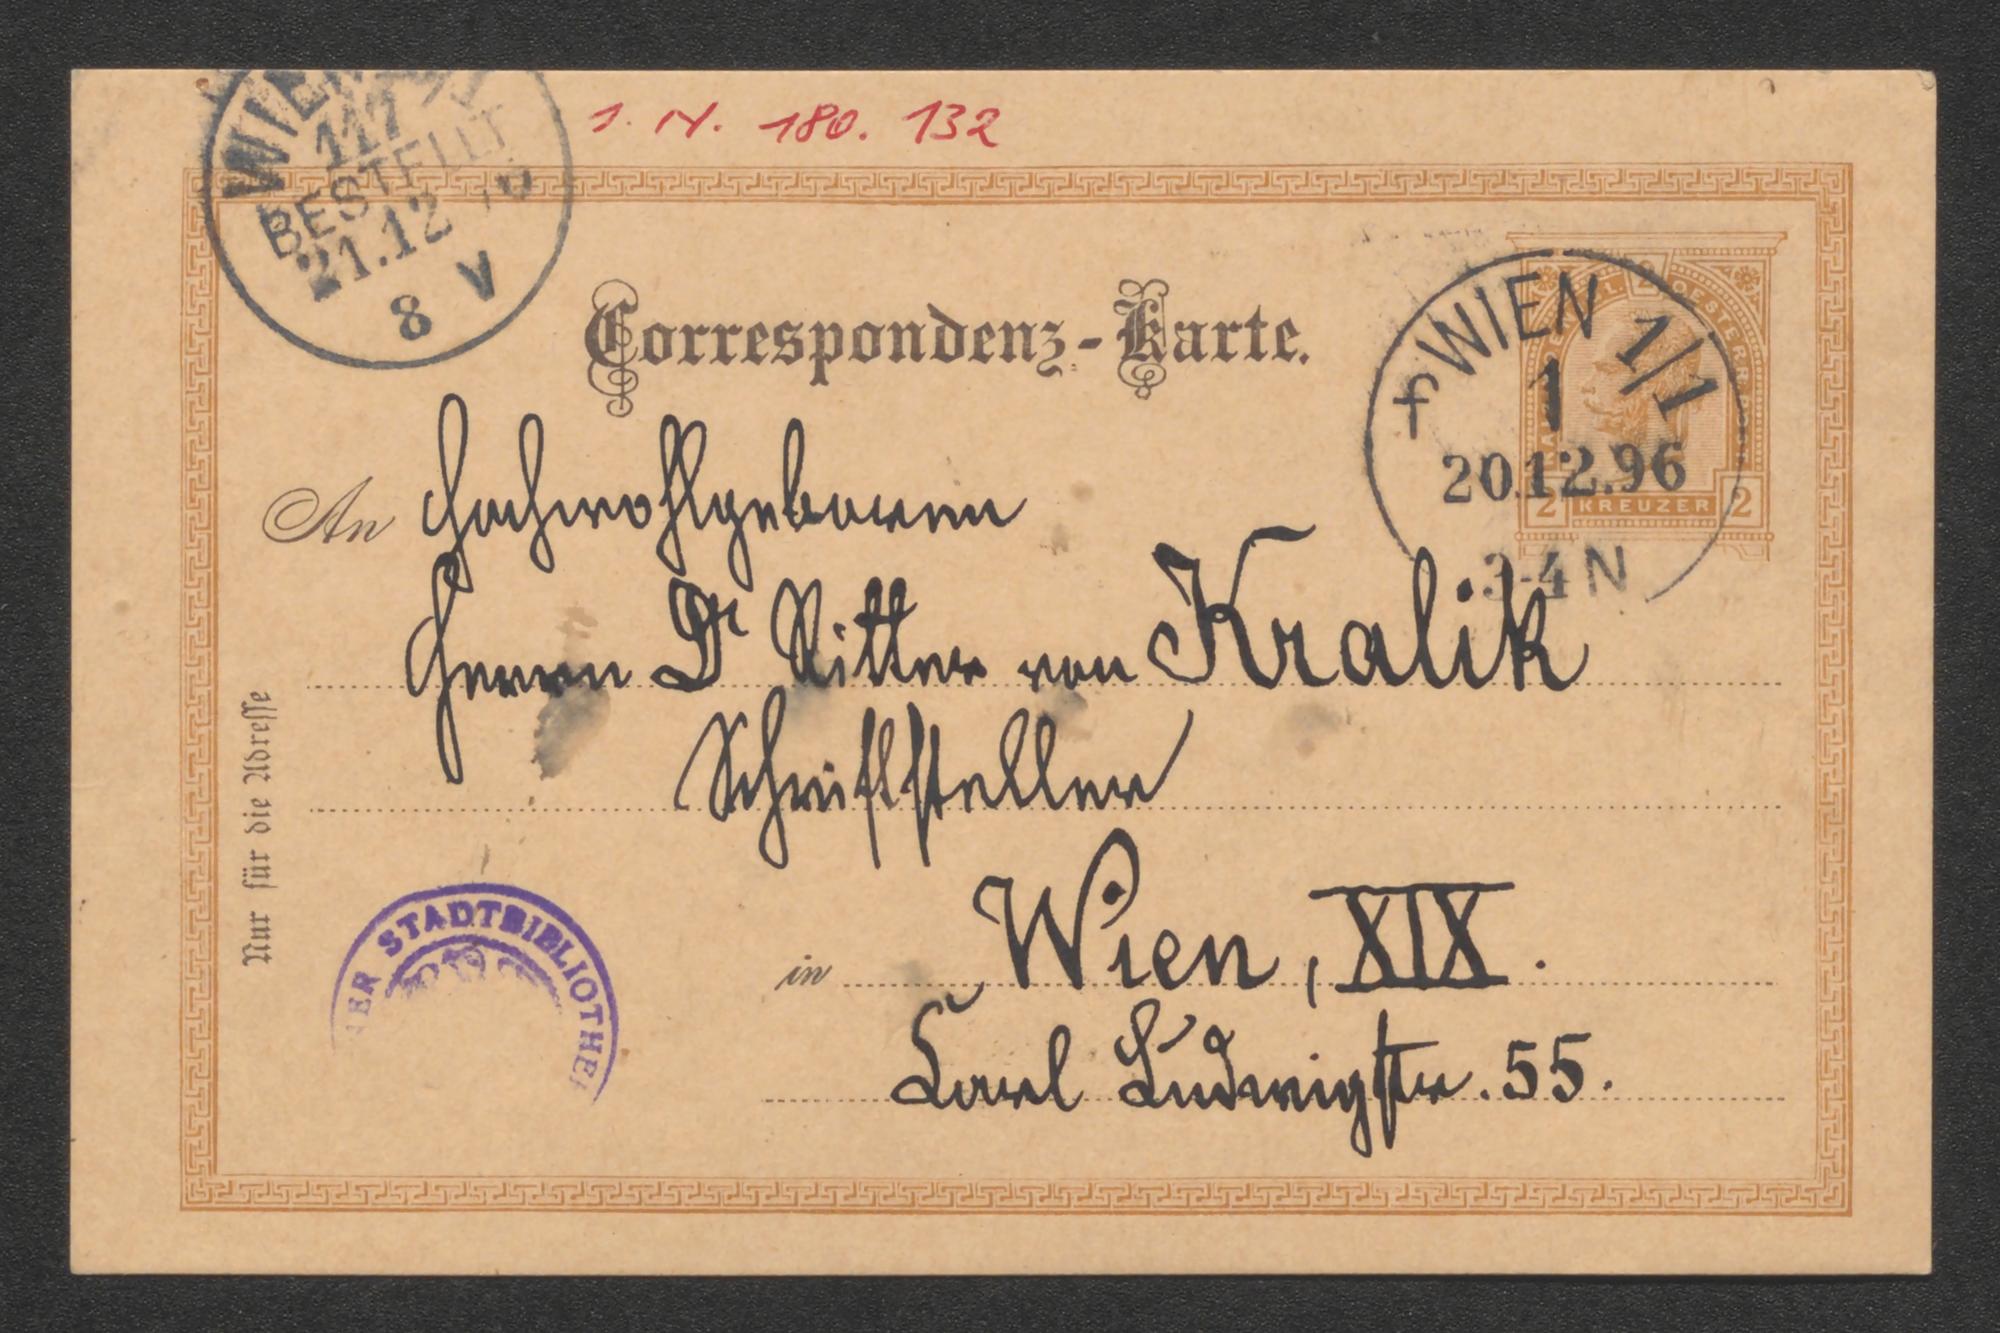 I. N. 180. 132
WIEN
117
BESTELLT
21.12
8 V
Correspondenz-Karte.
f WIEN 1/1
1
20.12.96
3-4 N
2 KREUZER 2
An Hochwohlgeboren
Herrn Dr Ritter von Kralik
Schriftsteller
in Wien, XIX.
Karl Ludwigstr. 55.
Nur für die Adresse
STADTBIBLIOTHE